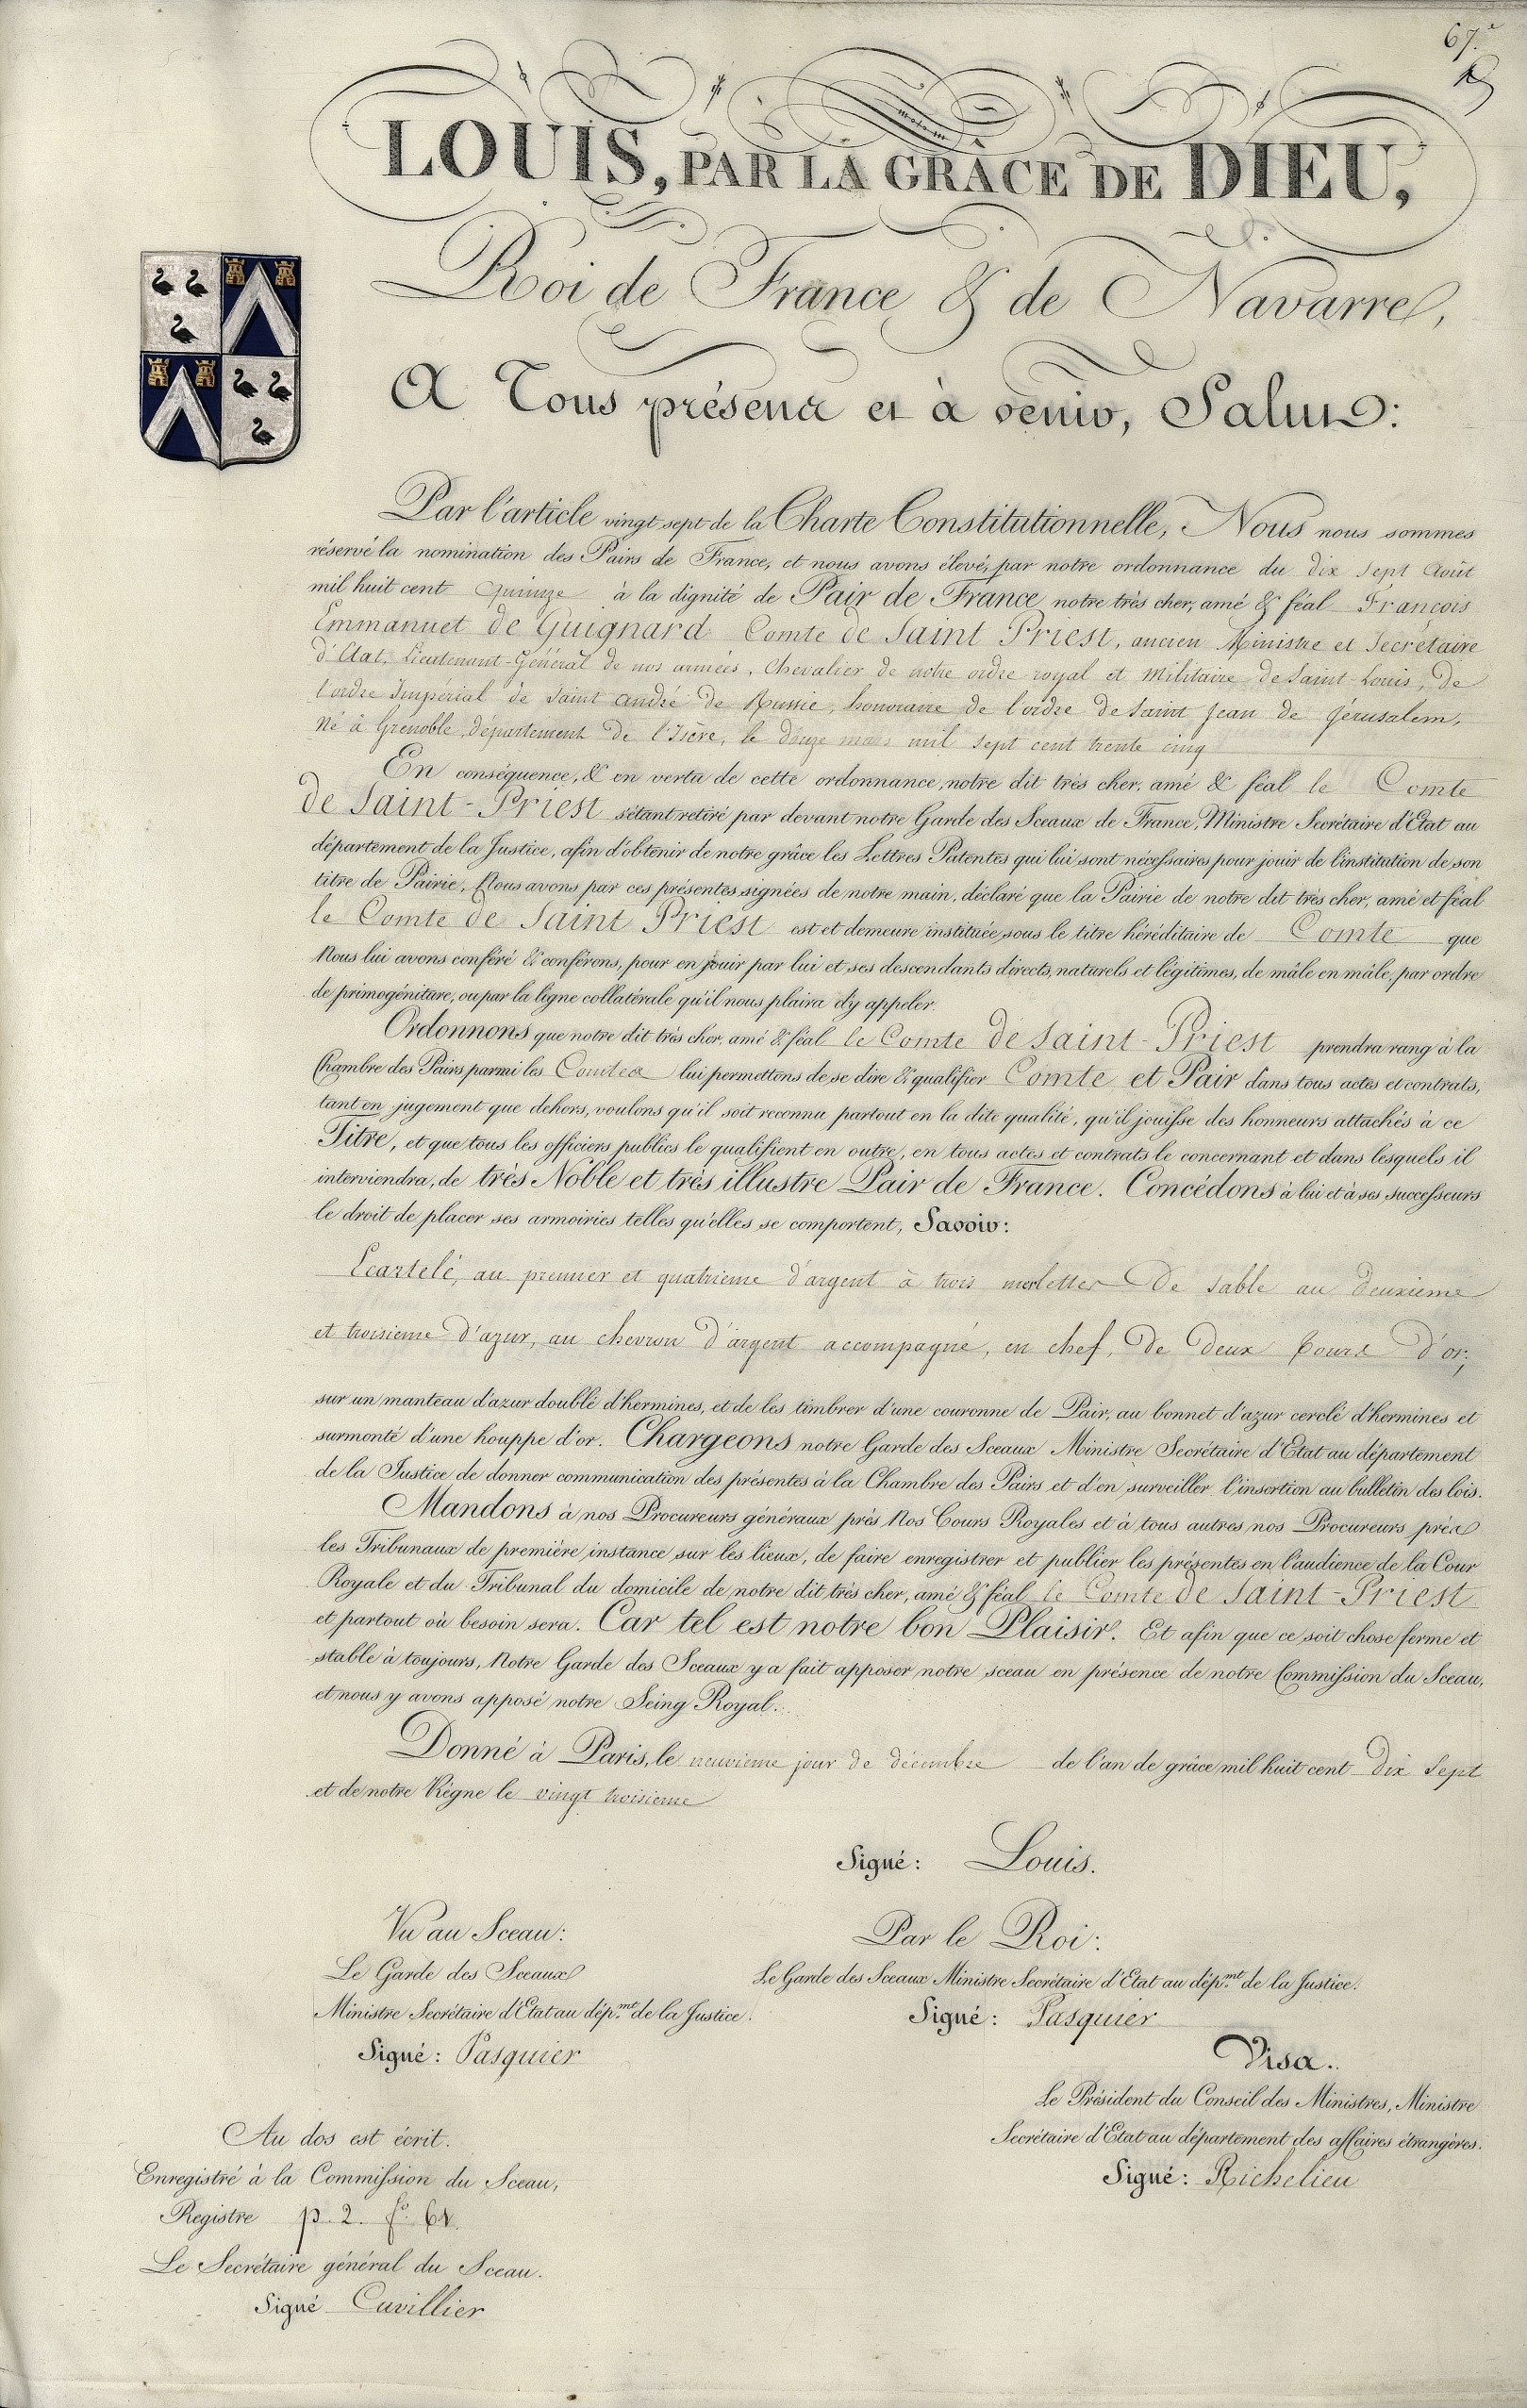 67.e
LOUIS, PAR LA GRÂCE DE DIEU,
Roi de France & de Navarre,
A Tous présens et à venir, Salut:
Par l'article vingt sept de la Charte Constitutionnelle, Nous nous sommes
réservé la nomination des Pairs de France, et nous avons élevé, par notre ordonnance du dix sept Août
mil huit cent quinze à la dignité de Pair de France notre très cher, amé & féal François
Emmanuel de Guignard Comte de Saint Priest, ancien Ministre et Secrétaire
d'Etat, Lieutenant-Général de nos armées, Chevalier de notre ordre royal et Militaire de Saint-Louis, de
l'ordre Impérial de Saint André de Russie, honoraire de l'ordre de Saint Jean de Jérusalem,
Né à Grenoble, département de l'Isère, le douze mars mil sept cent trente cinq
En conséquence, & en vertu de cette ordonnance, notre dit très cher, amé & féal le Comte
de Saint-Priest s'étant retiré par devant notre Garde des Sceaux de France, Ministre Secrétaire d'Etat au
département de la Justice, afin d'obtenir de notre grâce les Lettres Patentes qui lui sont nécessaires pour jouir de l'institution de son
titre de Pairie, Nous avons par ces présentes signées de notre main, déclaré que la Pairie de notre dit très cher, amé et féal
le Comte de Saint Priest est et demeure instituée sous le titre héréditaire de Comte que
Nous lui avons conféré & conférons, pour en jouir par lui et ses descendants directs, naturels et légitimes, de mâle en mâle, par ordre
de primogéniture, ou par la ligne collatérale qu'il nous plaira d'y appeler.
Ordonnons que notre dit très cher, amé & féal le Comte de Saint-Priest prendra rang à la
Chambre des Pairs parmi les Comtes lui permettons de se dire & qualifier Comte et Pair dans tous actes et contrats,
tant en jugement que dehors, voulons qu'il soit reconnu partout en la dite qualité, qu'il jouisse des honneurs attachés à ce
Titre, et que tous les officiers publics le qualifient en outre, en tous actes et contrats le concernant et dans lesquels il
interviendra, de très Noble et très illustre Pair de France. Concédons à lui et à ses successeurs
le droit de placer ses armoiries telles qu'elles se comportent, Savoir:
Ecartelé, au premier et quatrieme d'argent à trois merlettes de sable au deuxieme
et troisieme d'azur, au chevron d'argent accompagné, en chef, de deux tours d'or;
sur un manteau d'azur doublé d'hermines, et de les timbrer d'une couronne de Pair, au bonnet d'azur cerclé d'hermines et
surmonté d'une houppe d'or. Chargeons notre Garde des Sceaux Ministre Secrétaire d'Etat au département
de la Justice de donner communication des présentes à la Chambre des Pairs et d'en surveiller l'insertion au bulletin des lois.
Mandons à nos Procureurs généraux près Nos Cours Royales et à tous autres nos Procureurs près
les Tribunaux de première instance sur les lieux, de faire enregistrer et publier les présentes en l'audience de la Cour
Royale et du Tribunal du domicile de notre dit très cher, amé & féal le Comte de Saint-Priest
et partout où besoin sera. Car tel est notre bon Plaisir. Et afin que ce soit chose ferme et
stable à toujours, Notre Garde des Sceaux y a fait apposer notre sceau en présence de notre Commission du Sceau,
et nous y avons apposé notre Seing Royal.
Donné à Paris, le neuvieme jour de décembre de l'an de grâce mil huit cent dix sept
et de notre Règne le vingt troisieme
Signé: Louis.
Vu au Sceau:
Le Garde des Sceaux
Ministre Secrétaire d'Etat au dép.mt de la Justice.
Signé: Pasquier
Par le Roi:
Le Garde des Sceaux Ministre Secrétaire d'Etat au dép.mt de la Justice.
Signé: Pasquier
Visa.
Le Président du Conseil des Ministres, Ministre
Secrétaire d'Etat au département des affaires étrangères.
Signé: Richelieu
Au dos est écrit.
Enregistré à la Commission du Sceau,
Registre p. 2. f.o
Le Secrétaire général du Sceau.
Signé Cuvillier